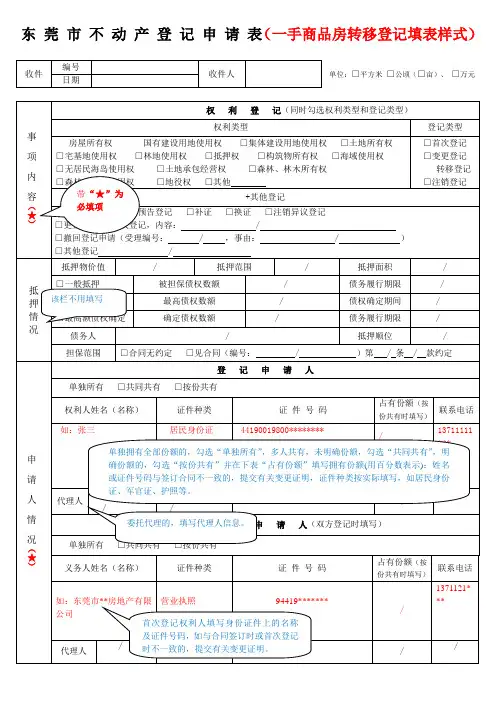 东莞市不动产登记申请表(一手商品房转移登记填表样式)
收件 编号 收件人 单位：□平方米 □公顷（□亩）、 □万元
日期
事项内容（★）
权 利 登 记（同时勾选权利类型和登记类型）
权利类型 登记类型
房屋所有权 国有建设用地使用权 □集体建设用地使用权 □土地所有权 □首次登记
□宅基地使用权 □林地使用权 □抵押权 □构筑物所有权 □海域使用权 □变更登记
□无居民海岛使用权 □土地承包经营权 □森林、林木所有权 转移登记
□森 用权 □地役权 □其他 □注销登记
带“★”为必填项
+其他登记
预告登记 □补证 □换证 □注销异议登记
□更 登记，内容： /
□撤回登记申请（受理编号： / ，事由： / ）
□其他登记 /
抵押情况
抵押物价值 / 抵押范围 / 抵押面积 /
□一般抵押 被担保债权数额 / 债务履行期限 /
该栏不用填写
最高债权数额 / 债权确定期间 /
最高额债权确定 确定债权数额 / 债务履行期限 /
债务人 / 抵押顺位 /
担保范围 □合同无约定 □见合同（编号： / ）第 / 条 / 款约定
申请人情况（★）
登 记 申 请 人
单独所有 □共同共有 □按份共有
权利人姓名（名称） 证件种类 证 件 号 码 占有份额（按份共有时填写） 联系电话
如：张三 居民身份证 44190019800******** / 13711111
单独拥有全部份额的，勾选“单独所有”，多人共有，未明确份额，勾选“共同共有”。明
确份额的，勾选“按份共有”并在下表“占有份额”填写拥有份额(用百分数表示)；姓名
或证件号码与签订合同不一致的，提交有关变更证明，证件种类按实际填写，如居民身份
证、军官证、护照等。
代理人 / /
委托代理的，填写代理人信息。
申 请 人（双方登记时填写）
单独所有 □共同共有 □按份共有
义务人姓名（名称） 证件种类 证 件 号 码 占有份额（按份共有时填写） 联系电话
如：东莞市**房地产有限公司 营业执照 94419******* / 1371121***
首次登记权利人填写身份证件上的名称
及证件号码，如与合同签订时或首次登记
时不一致的，提交有关变更证明。
代理人 / / /